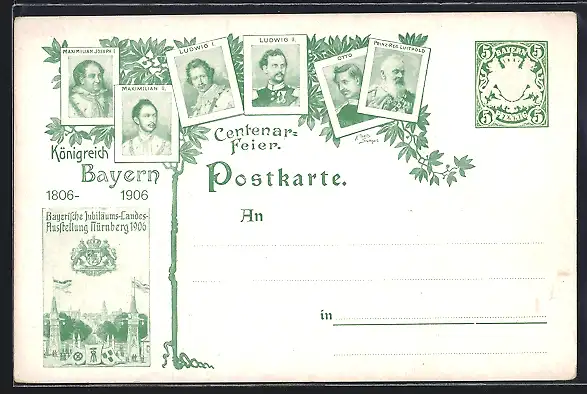 MAXIMILIAN JOSEPH I.
MAXIMILIAN II.
LUDWIG I.
LUDWIG II.
OTTO
PRINZ-REG. LUITPOLD
5 5
BAYERN
PFENNIG
5 5
Centenar-
Feier.
Königreich
Bayern
1806- 1906
Postkarte.
An
in
Bayerische Jubiläums-Landes-
Ausstellung Nürnberg 1906